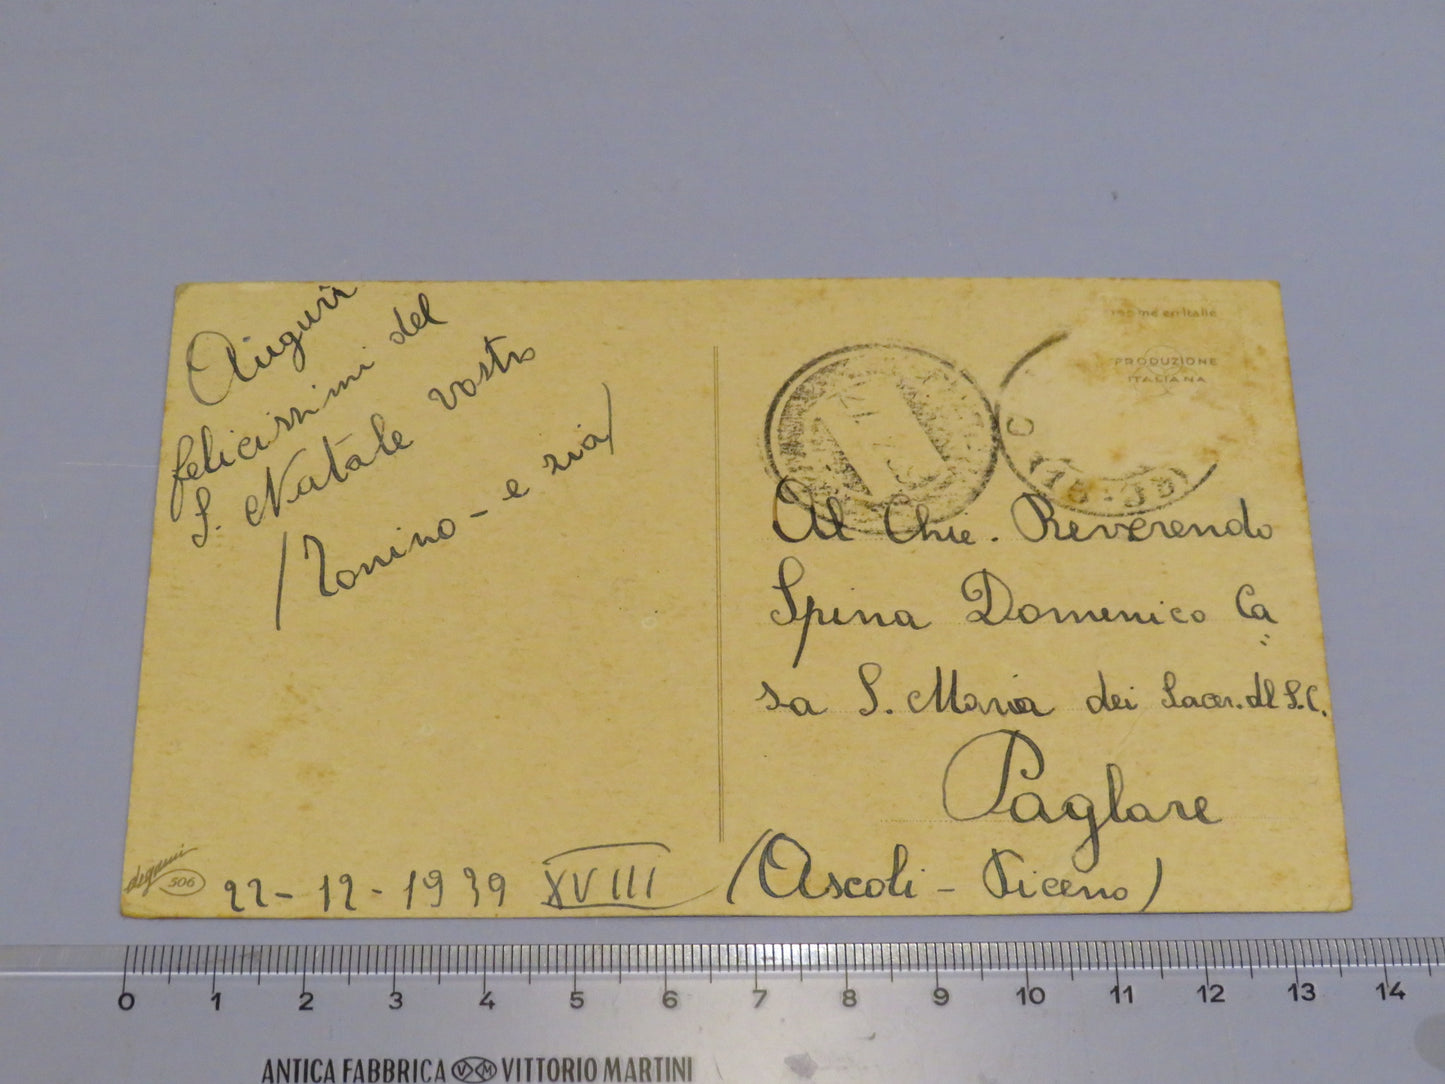 Auguri
felicissimi del
S. Natale vostro
(Tonino - e zia)
22-12-1939 XVIII
degami
506
PRODUZIONE
ITALIANA
Al Chie. Reverendo
Spina Domenico Ca
sa S. Maria dei Sacer. del S.C.
Paglare
(Ascoli - Piceno)
0 1 2 3 4 5 6 7 8 9 10 11 12 13 14
ANTICA FABBRICA VM VITTORIO MARTINI